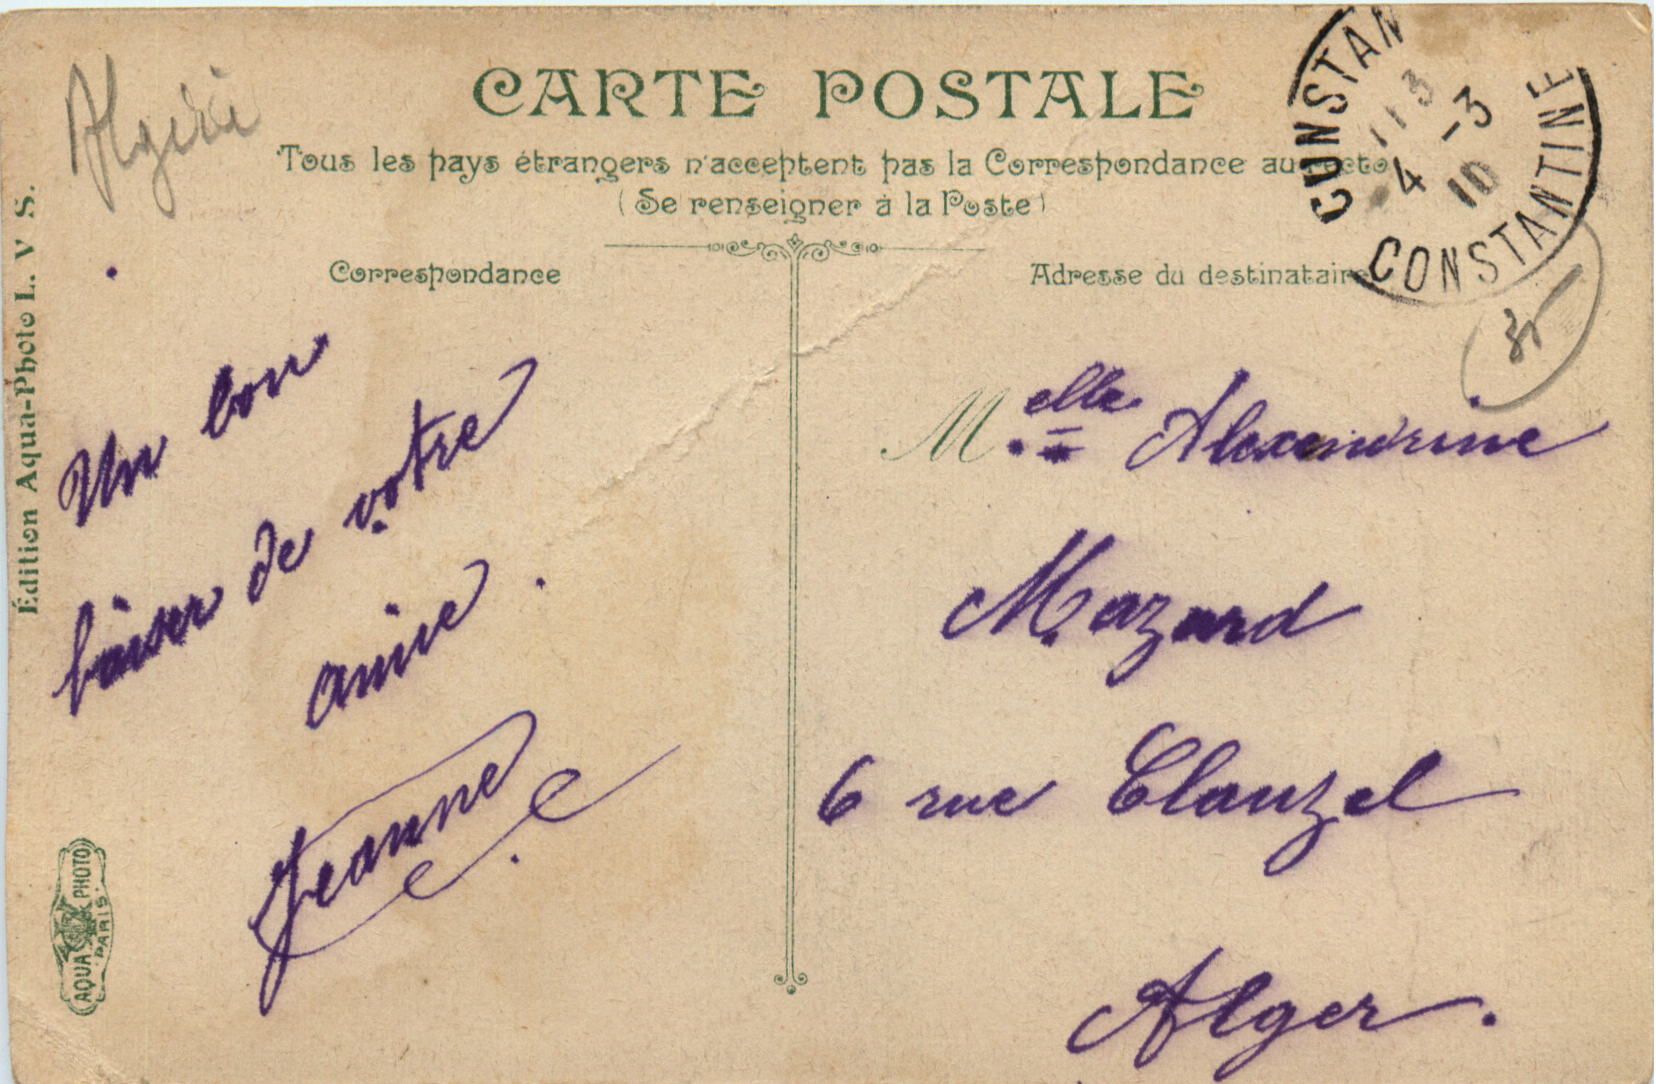 Algérie
CARTE POSTALE
Tous les pays étrangers n'acceptent pas la Correspondance au recto
(Se renseigner à la Poste)
Correspondance
Adresse du destinataire
CONSTANTINE
4 -3
10
CONSTANTINE
35
Un bon
baiser de votre
amie.
Jeanne
Melle Alexendrine
Mazard
6 rue Clauzel
Alger.
Édition Aqua-Photo L. V S.
AQUA PHOTO
PARIS